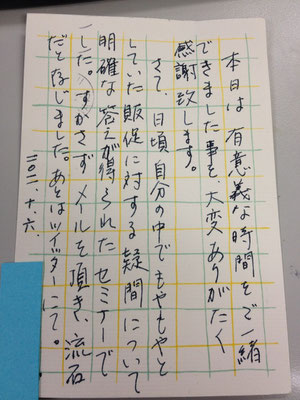 本日は有意義な時間をご一緒
できました事を、大変ありがたく
感謝致します。
さて、日頃自分の中でもやもやと
していた販促に対する疑問について
明確な答えが得られたセミナーで
した。すかさずメールを頂き、流石
だと存じました。あとはツイッターにて。
二〇一一、十、六、